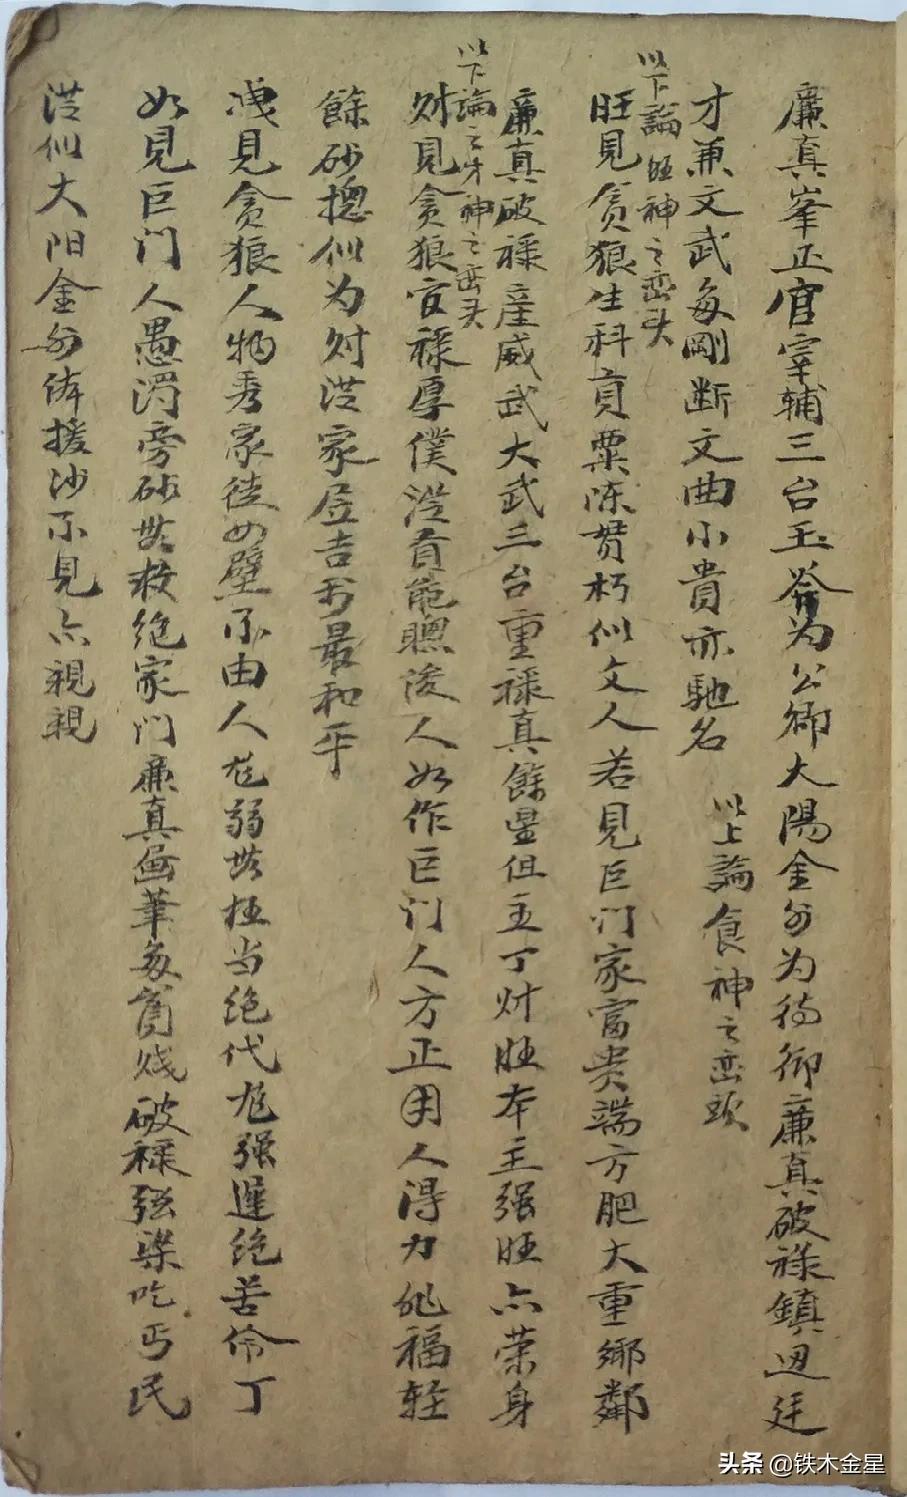 廉真峯正官宰輔三台玉為公卿大陽金為待御廉真破祿鎮边廷
才兼文武每剛断文曲小貴亦馳名
以上論食神之峦頭
以下論旺神之峦头
旺見贪狼生科貢粟陈贯朽似文人若見巨门家富贵端方肥大重鄉鄰
廉真破祿産威武大武三台重祿真餘星但主丁财旺本主强旺亦荣身
以下論之才神之峦头
财見贪狼官祿厚僕從有能聰俊人如作巨门人方正用人得力福轻
餘砂摠似为财從家居吉最和平
洩見贪狼人物秀家徒四壁不由人尨弱无扛当绝代尨强遲绝苦伶丁
如見巨门人愚濁旁砂无救绝家门廉真画筆多貧贱破祿强梁吃丐民
從似大阳金体援沙不見亦親親
头条 @铁木金星